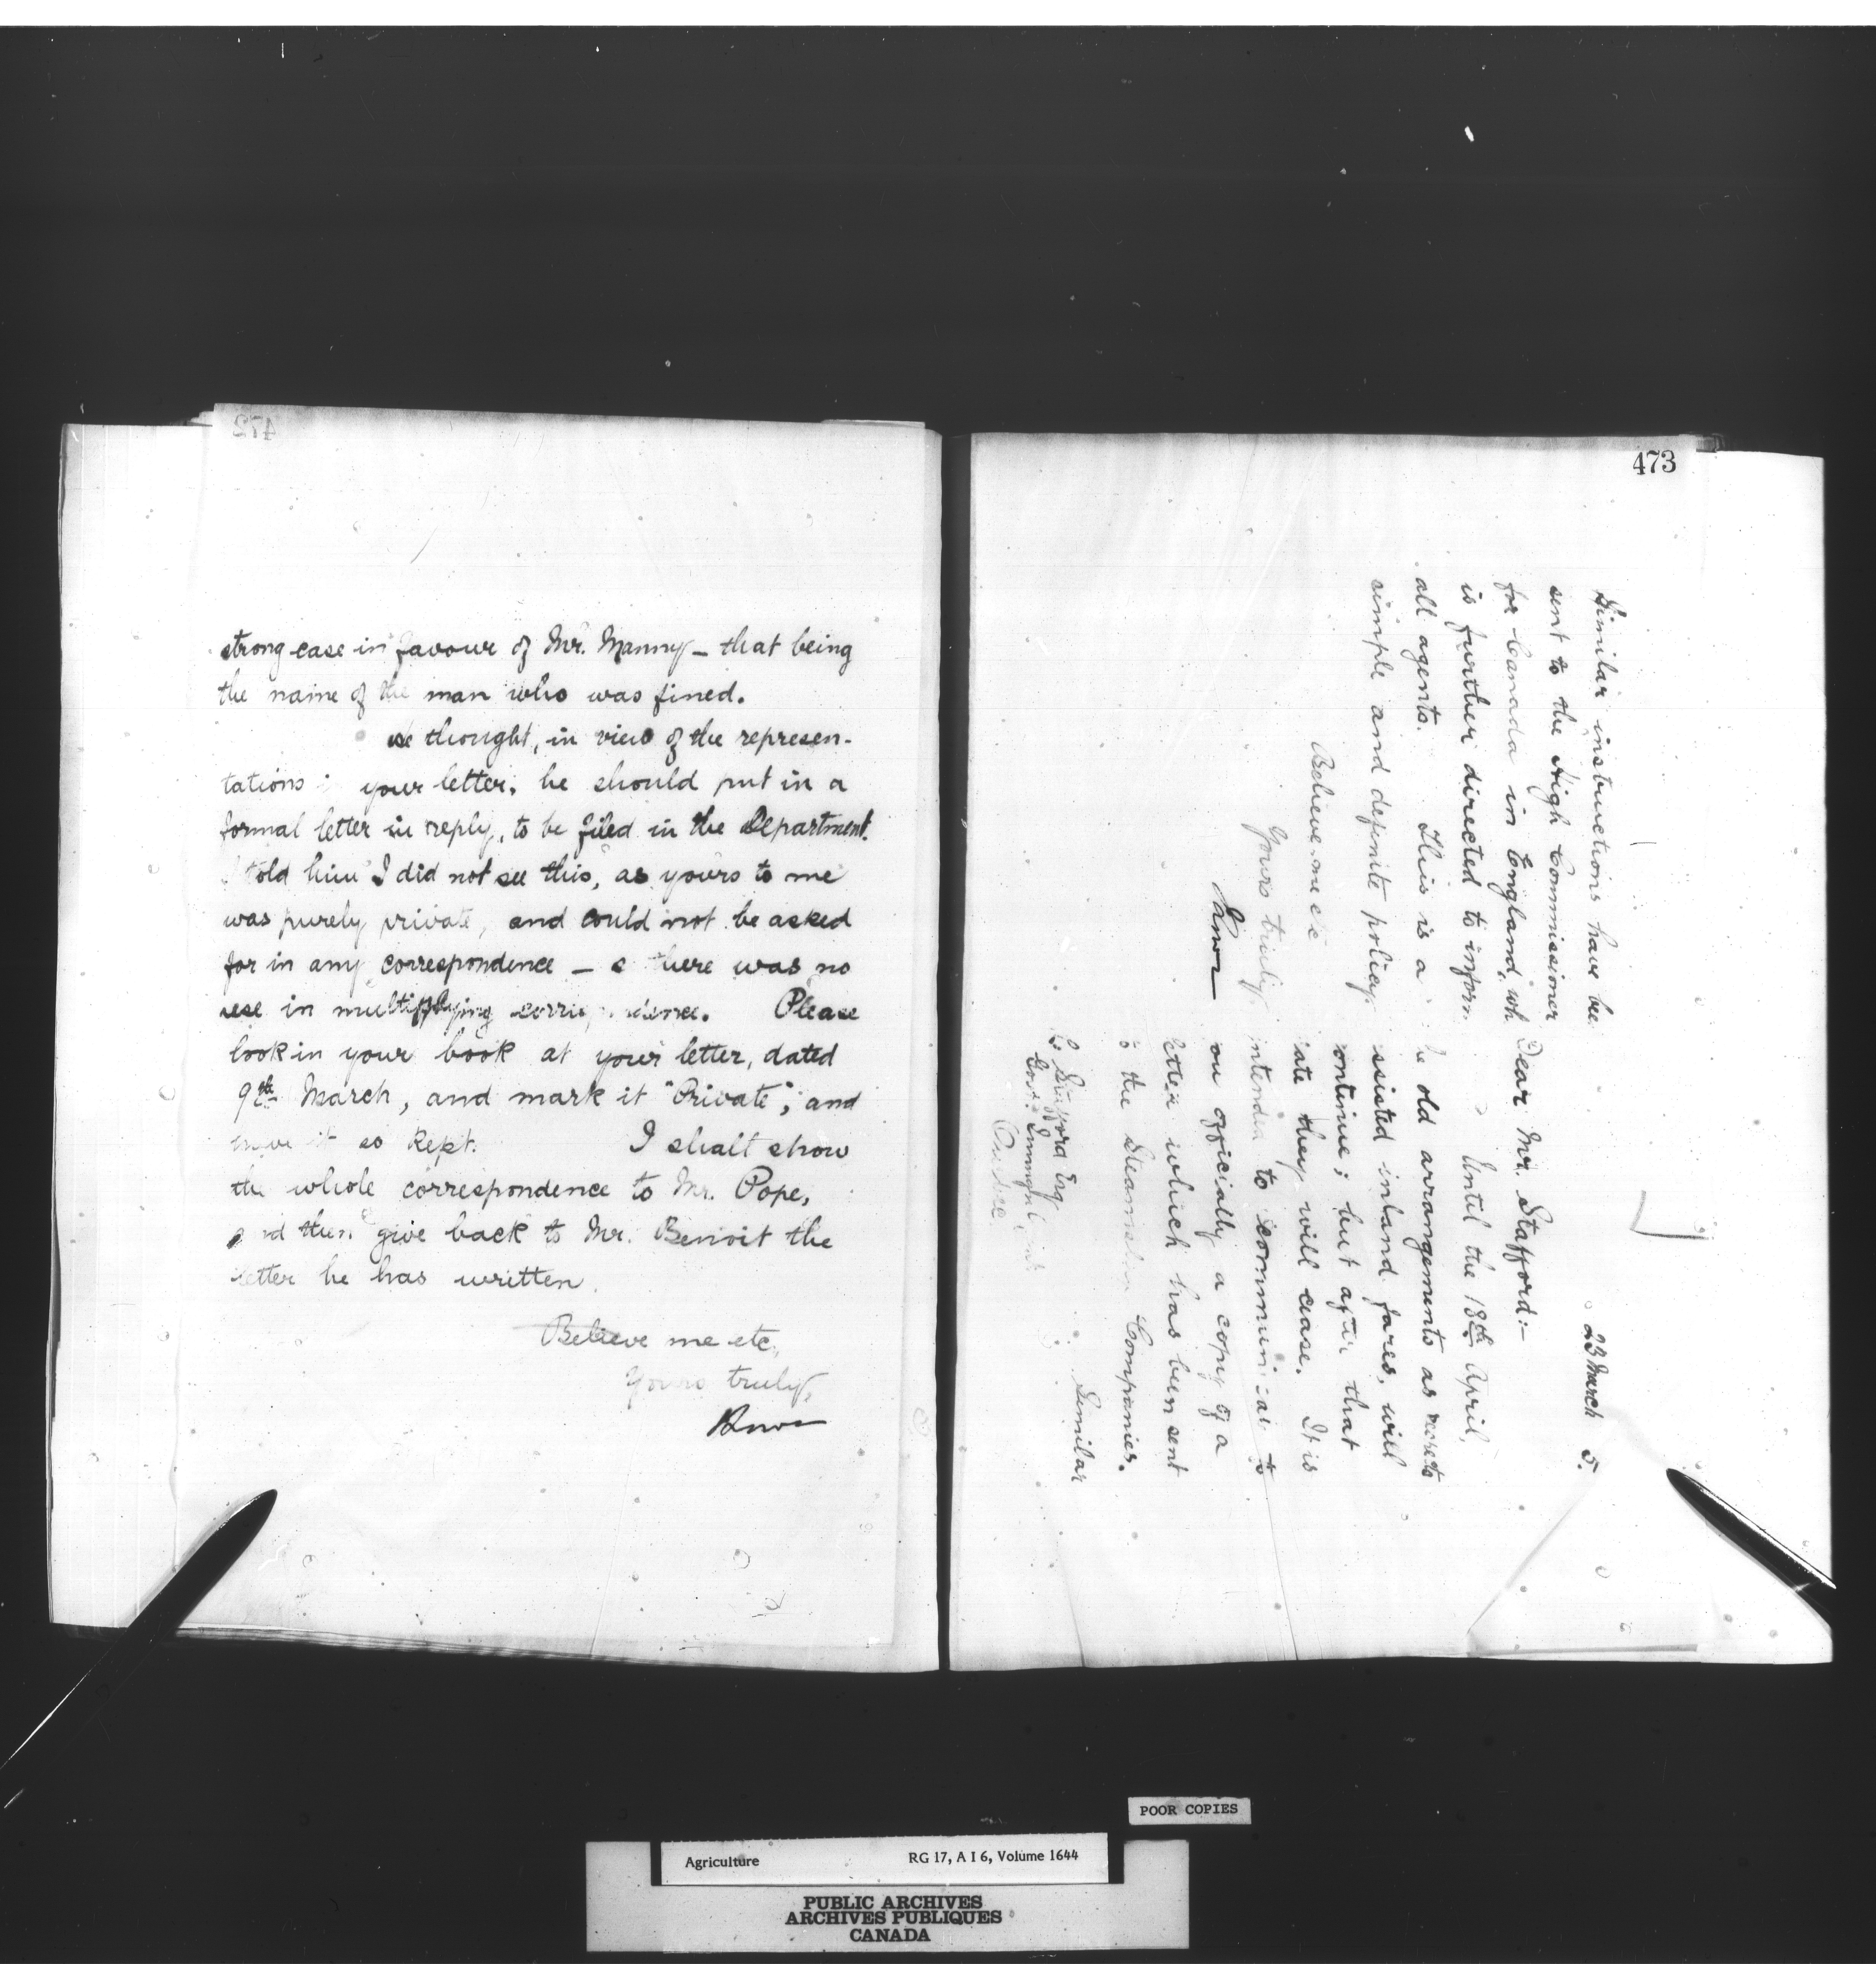 472
strong case in favour of Mr. Manny – that being
the name of the man who was fined.
He thought, in view of the represen-
tations in your letter, he should put in a
formal letter in reply, to be filed in the Department.
I told him I did not see this, as yours to me
was purely private, and could not be asked
for in any correspondence – there was no
use in multiplying correspondence. Please
look in your book at your letter, dated
9th March, and mark it "Private", and
have it so kept. I shall show
the whole correspondence to Mr. Pope,
and then give back to Mr. Benoit the
letter he has written.
Believe me etc.,
Yours truly,
473
23 March 5.
Dear Mr. Stafford:–
Until the 18th April,
the old arrangements as respects
assisted inland fares, will
continue; but after that
date they will cease. It is
intended to communicate to
you officially a copy of a
letter which has been sent
to the Steamship Companies.
Similar
L. Stafford Esq
Govt. Immigt.
Quebec
Similar instructions have been
sent to the High Commissioner
for Canada in England, who
is further directed to inform
all agents. This is a
simple and definite policy.
Believe me etc
Yours truly
POOR COPIES
Agriculture RG 17, A I 6, Volume 1644
PUBLIC ARCHIVES
ARCHIVES PUBLIQUES
CANADA